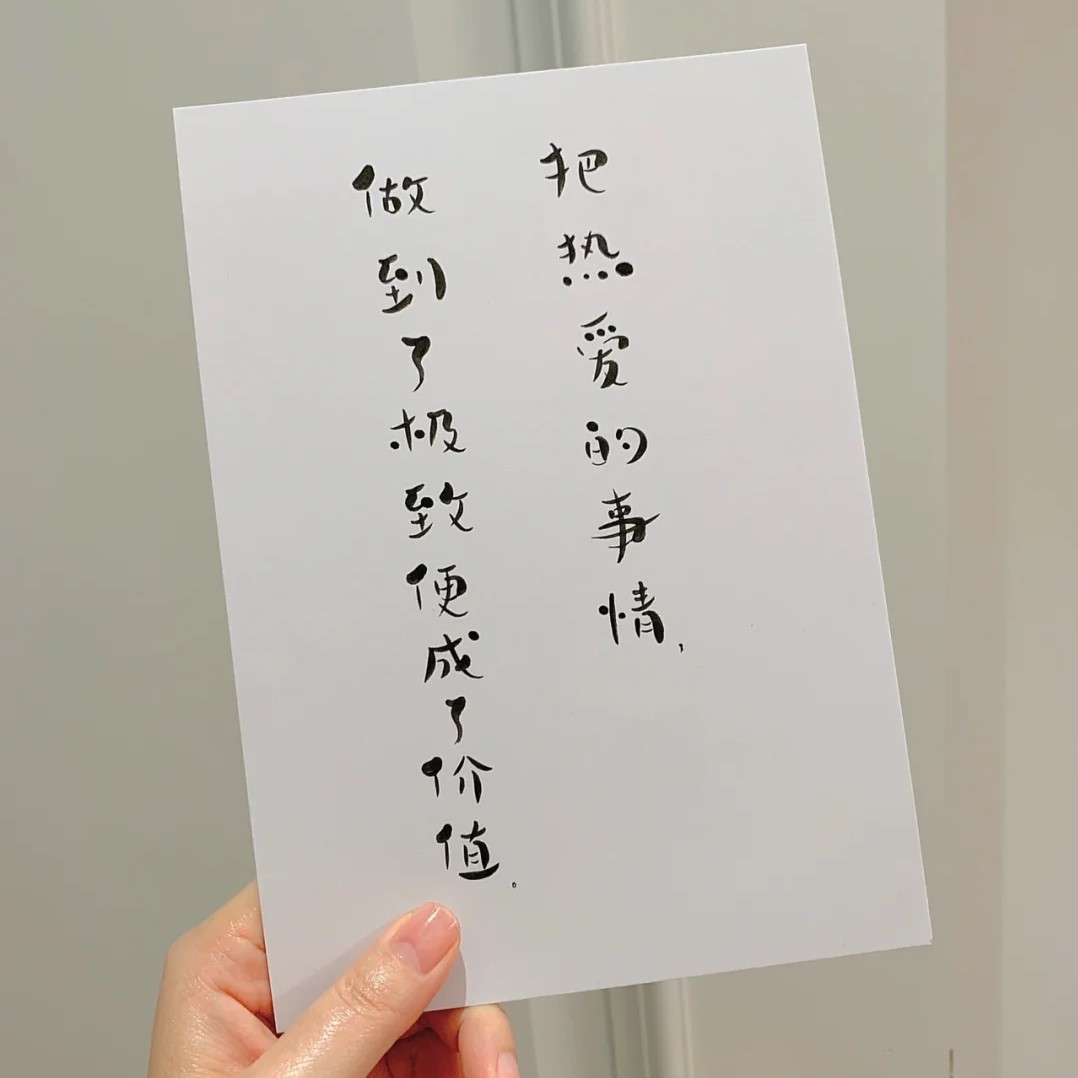 把热爱的事情，
做到了极致便成了价值。